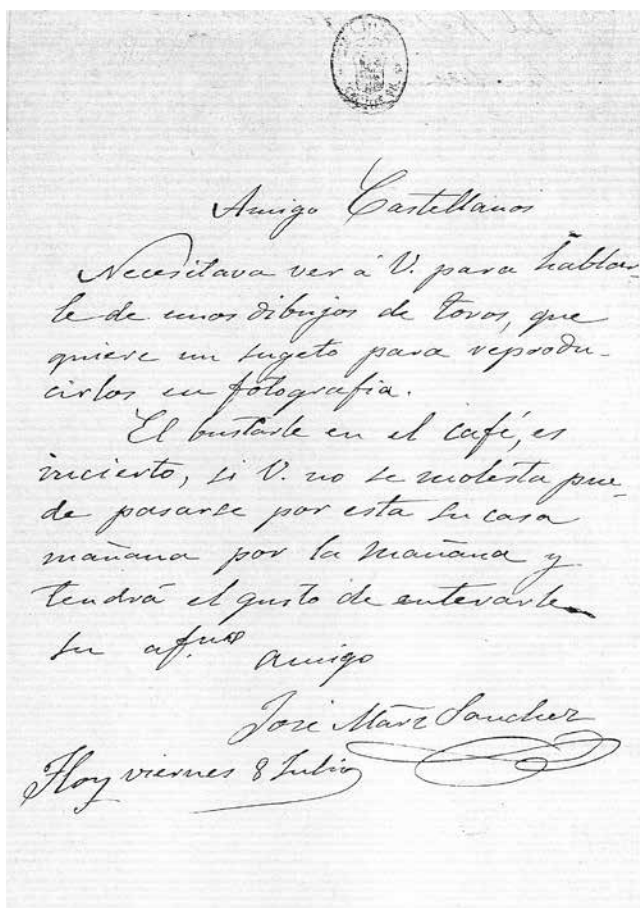 Amigo Castellanos
Necesitava ver á V. para hablar-
le de unos dibujos de toros, que
quiere un sugeto para reprodu-
cirlos en fotografia.
El buscarle en el café, es
incierto, si V. no se molesta pue-
de pasarse por esta su casa
mañana por la mañana y
tendrá el gusto de enterarle
su af.mo
amigo
José Mañz Sanchez
Hoy viernes 8 Julio